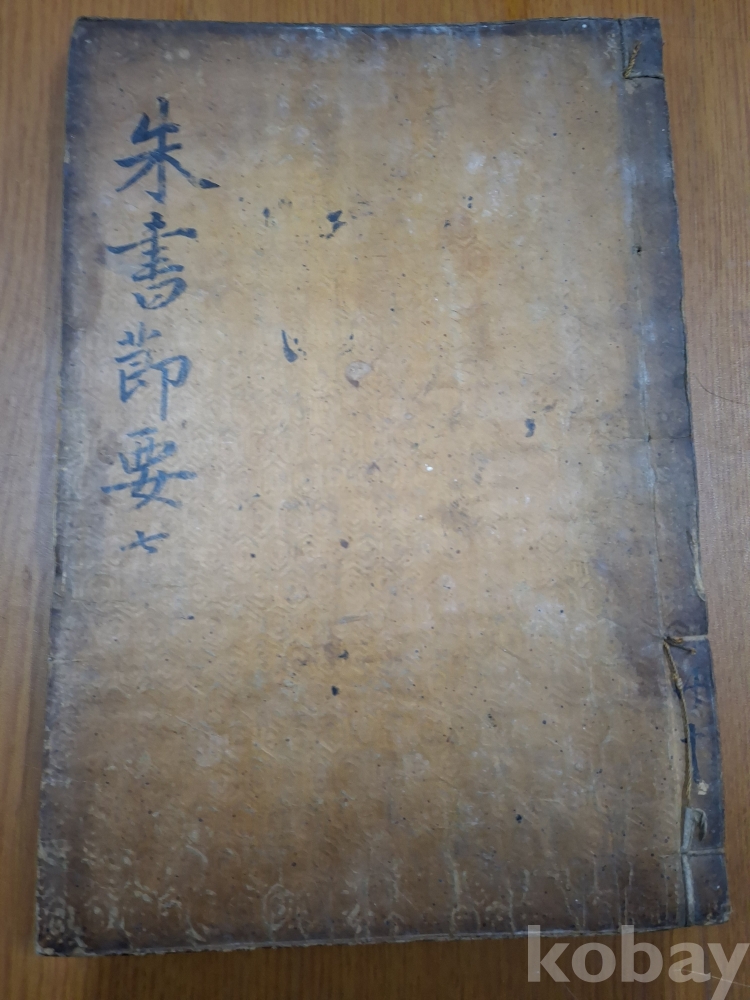 朱書節要 七
kobay